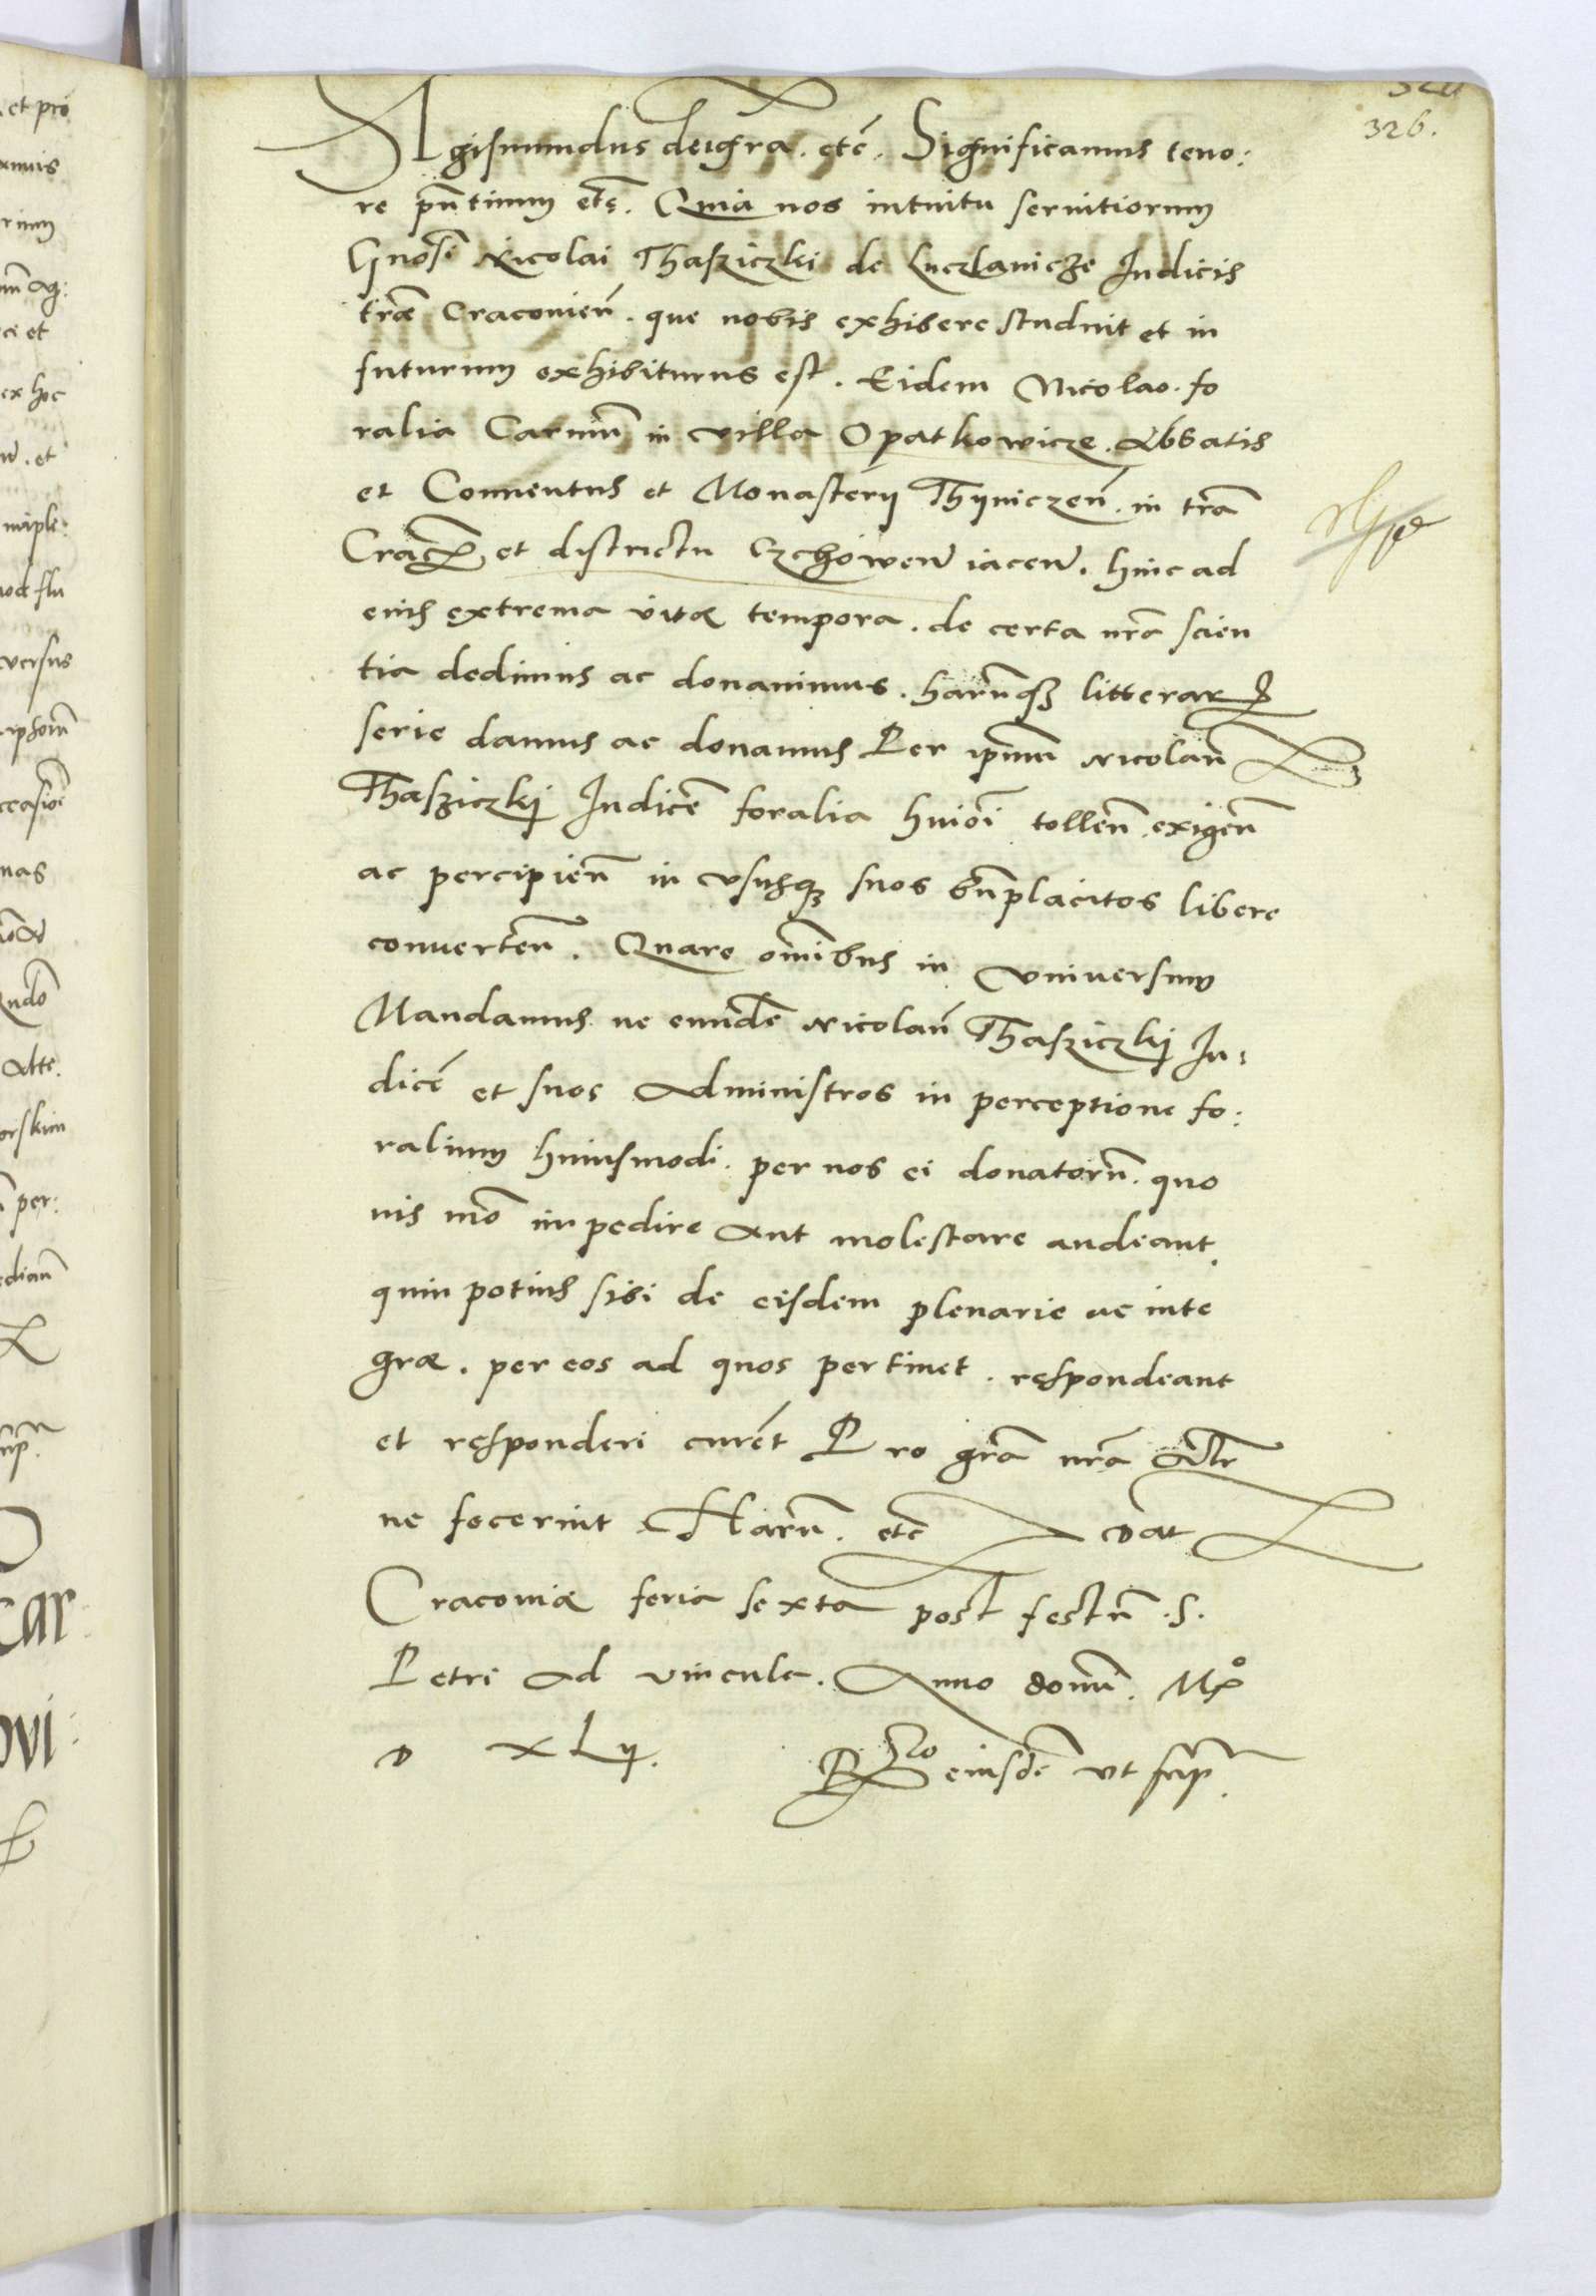 326.
Sigismundus dei gra. etc. Significamus teno:
re pntium etc. Quia nos intuitu seruitiorum
Gnosi Nicolai Thasziczki de Luczlanicze Iudicis
træ Cracouien. que nobis exhibere studuit et in
futurum exhibiturus est. Eidem Nicolao. fo
ralia Carnium in villa Opatkowicze. Abbatis
et Conuentus et Monasterij Thijniczen. in tra
Crac. et districtu Czchowen iacen. hinc ad
eius extrema vitæ tempora. de certa nra scien
tia dedimus ac donauimus. harumqz litterar
serie damus ac donamus Per ipsum Nicolaum
Thasziczkj Iudice foralia huioi tollen. exigen
ac percipien in vsusqz suos bnplacitos libere
conuerten. Quare omnibus in vniuersum
Mandamus ne eunde Nicolaum Thasziczkj Iu:
dice et suos Administros in perceptione fo:
ralium huiusmodi. per nos ei donatoru. quo
uis mo impedire aut molestare audeant.
quin potius sibi de eisdem plenarie ac inte
græ. per eos ad quos pertinet. respondeant
et responderi curet Pro gra nra Altr
ne fecerint Haru. etc Dat
Cracouiæ feria sexta post festu .S.
Petri ad vincula. Anno domi. Mo
D XLij. Rlo eiusde vt supr.